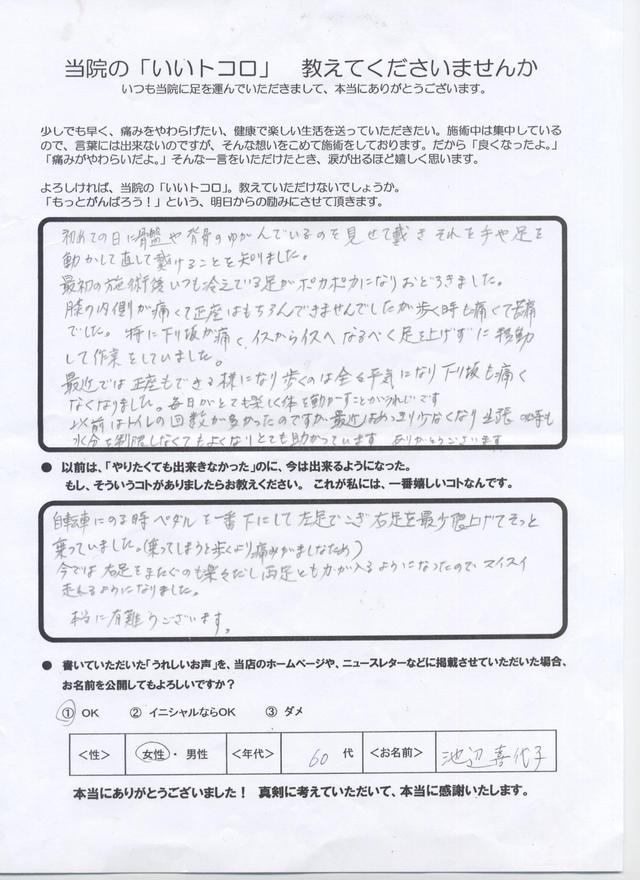 当院の「いいトコロ」　教えてくださいませんか
いつも当院に足を運んでいただきまして、本当にありがとうございます。
少しでも早く、痛みをやわらげたい、健康で楽しい生活を送っていただきたい。施術中は集中している
ので、言葉には出来ないのですが、そんな想いをこめて施術をしております。だから「良くなったよ。」
「痛みがやわらいだよ。」そんな一言をいただけたとき、涙が出るほど嬉しく思います。
よろしければ、当院の「いいトコロ」。教えていただけないでしょうか。
「もっとがんばろう！」という、明日からの励みにさせて頂きます。
初めての日に骨盤や背骨のゆがんでいるのを見せて戴きそれを手や足を
動かして直して戴けることを知りました。
最初の施術後いつも冷えている足がポカポカになりおどろきました。
膝の内側が痛くて正座はもちろんできませんでしたが歩く時も痛くて苦痛
でした。特に下り坂が痛く、イスからイスへなるべく足を上げずに移動
して作業をしていました。
最近では正座もできる様になり歩くのは全く平気になり下り坂も痛く
なくなりました。毎日がとても楽しく体を動かすことがうれしいです
以前はトイレの回数が多かったのですが最近はめっきり少なくなり出張の時も
水分を制限しなくてもよくなりとても助かっています　ありがとうございます
● 以前は、「やりたくても出来きなかった」のに、今は出来るようになった。
もし、そういうコトがありましたらお教えください。これが私には、一番嬉しいコトなんです。
自転車にのる時ペダルを一番下にして左足でこぎ右足を最少限上げてそっと
乗っていました。（乗ってしまうと歩くより痛みがましなため）
今では右足をまたぐのも楽々だし両足とも力が入るようになったのでスイスイ
走れるようになりました。
本当に有難うございます。
● 書いていただいた「うれしいお声」を、当店のホームページや、ニュースレターなどに掲載させていただいた場合、
お名前を公開してもよろしいですか？
① OK　② イニシャルならOK　③ ダメ
＜性＞　女性・男性　＜年代＞　60 代　＜お名前＞　池辺喜代子
本当にありがとうございました！　真剣に考えていただいて、本当に感謝いたします。